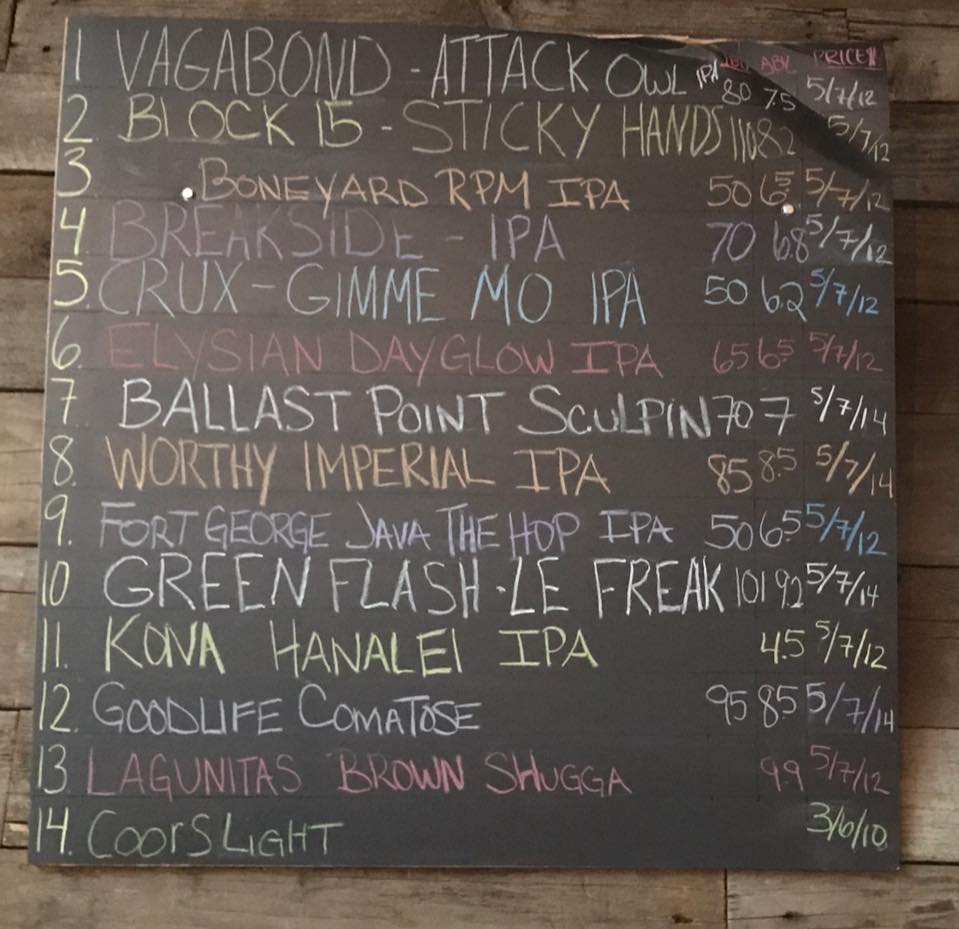 IBU ABV PRICE $
1 VAGABOND - ATTACK OWL IPA 80 7.5 5/7/12
2 BLOCK 15 - STICKY HANDS 110 8.2 5/7/12
3 BONEYARD RPM IPA 50 6.5 5/7/12
4. BREAKSIDE - IPA 70 6.8 5/7/12
5. CRUX - GIMME MO IPA 50 6.2 5/7/12
6. ELYSIAN DAYGLOW IPA 65 6.5 5/7/12
7 BALLAST POINT SCULPIN 70 7 5/7/14
8. WORTHY IMPERIAL IPA 85 8.5 5/7/14
9. FORT GEORGE JAVA THE HOP IPA 50 6.5 5/7/12
10 GREEN FLASH - LE FREAK 101 9.2 5/7/14
11. KONA HANALEI IPA 4.5 5/7/12
12. GOODLIFE COMATOSE 95 8.5 5/7/14
13 LAGUNITAS BROWN SHUGGA 9.9 5/7/12
14. COORS LIGHT 3/6/10